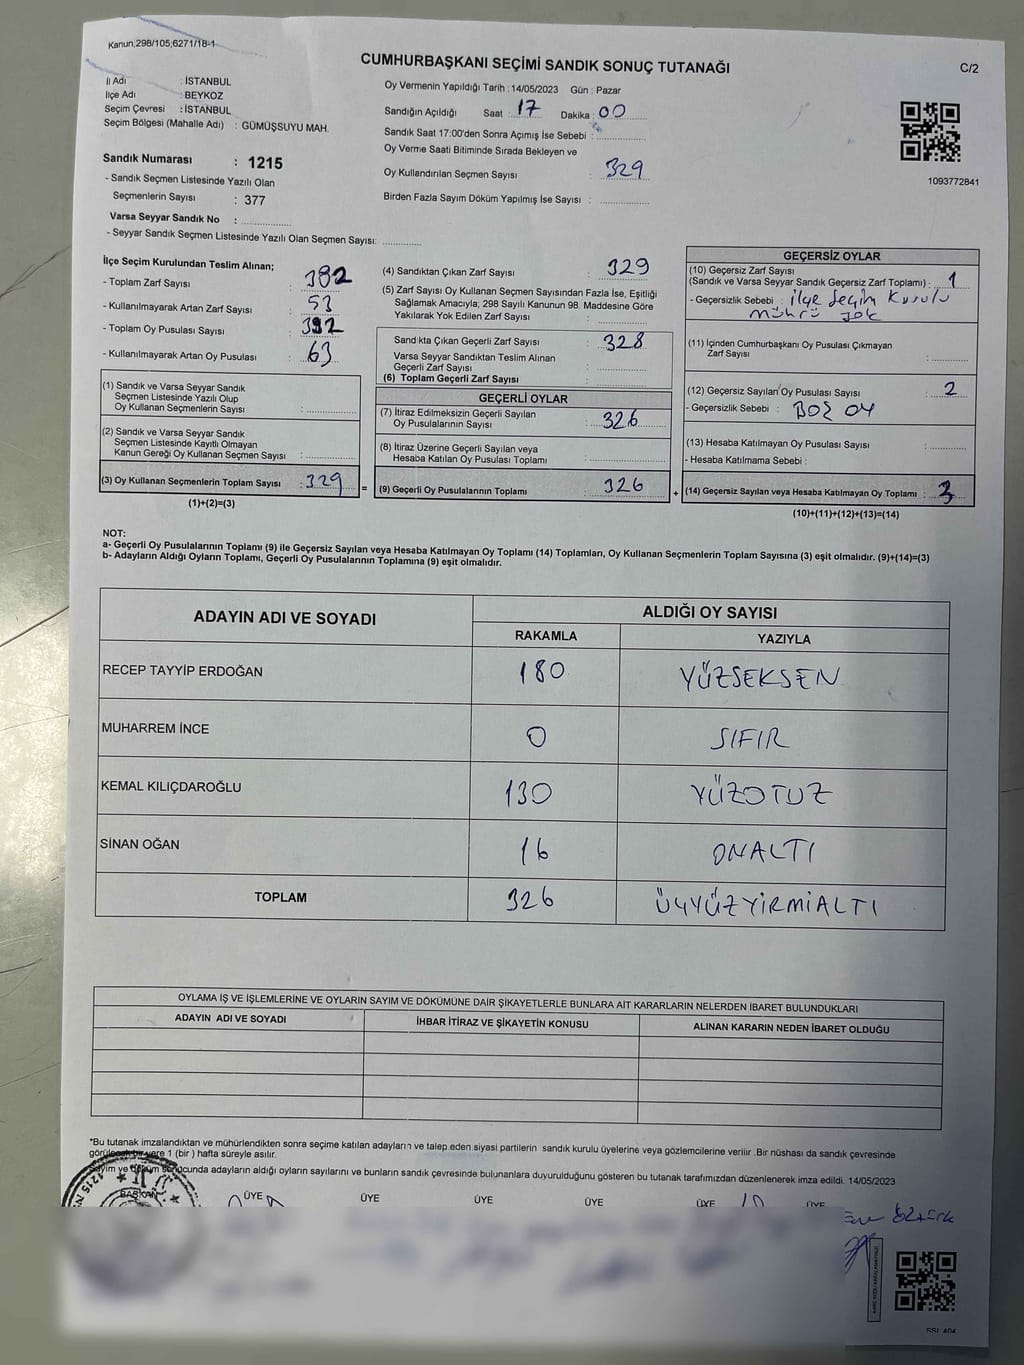 Kanun,298/105;6271/18-1
CUMHURBAŞKANI SEÇİMİ SANDIK SONUÇ TUTANAĞI
C/2
İl Adı : İSTANBUL
İlçe Adı : BEYKOZ
Seçim Çevresi : İSTANBUL
Seçim Bölgesi (Mahalle Adı) : GÜMÜŞSUYU MAH.
Sandık Numarası : 1215
- Sandık Seçmen Listesinde Yazılı Olan
Seçmenlerin Sayısı : 377
Varsa Seyyar Sandık No :
- Seyyar Sandık Seçmen Listesinde Yazılı Olan Seçmen Sayısı:
Oy Vermenin Yapıldığı Tarih : 14/05/2023 Gün : Pazar
Sandığın Açıldığı Saat : 17 Dakika : 00
Sandık Saat 17:00'den Sonra Açımış İse Sebebi :
Oy Verme Saati Bitiminde Sırada Bekleyen ve
Oy Kullandırılan Seçmen Sayısı : 329
Birden Fazla Sayım Döküm Yapılmış İse Sayısı :
1093772841
İlçe Seçim Kurulundan Teslim Alınan;
- Toplam Zarf Sayısı : 382
- Kullanılmayarak Artan Zarf Sayısı : 53
- Toplam Oy Pusulası Sayısı : 392
- Kullanılmayarak Artan Oy Pusulası : 63
(1) Sandık ve Varsa Seyyar Sandık
Seçmen Listesinde Yazılı Olup
Oy Kullanan Seçmenlerin Sayısı :
(2) Sandık ve Varsa Seyyar Sandık
Seçmen Listesinde Kayıtlı Olmayan
Kanun Gereği Oy Kullanan Seçmen Sayısı :
(3) Oy Kullanan Seçmenlerin Toplam Sayısı : 329
(1)+(2)=(3)
=
(4) Sandıktan Çıkan Zarf Sayısı : 329
(5) Zarf Sayısı Oy Kullanan Seçmen Sayısından Fazla İse, Eşitliği
Sağlamak Amacıyla; 298 Sayılı Kanunun 98. Maddesine Göre
Yakılarak Yok Edilen Zarf Sayısı :
Sandıkta Çıkan Geçerli Zarf Sayısı : 328
Varsa Seyyar Sandıktan Teslim Alınan
Geçerli Zarf Sayısı :
(6) Toplam Geçerli Zarf Sayısı :
GEÇERLİ OYLAR
(7) İtiraz Edilmeksizin Geçerli Sayılan
Oy Pusulalarının Sayısı : 326
(8) İtiraz Üzerine Geçerli Sayılan veya
Hesaba Katılan Oy Pusulası Toplamı :
(9) Geçerli Oy Pusulalarının Toplamı : 326
+
GEÇERSİZ OYLAR
(10) Geçersiz Zarf Sayısı
(Sandık ve Varsa Seyyar Sandık Geçersiz Zarf Toplamı) : 1
- Geçersizlik Sebebi : ilçe Seçim Kurulu
mührü yok
(11) İçinden Cumhurbaşkanı Oy Pusulası Çıkmayan
Zarf Sayısı :
(12) Geçersiz Sayılan Oy Pusulası Sayısı : 2
- Geçersizlik Sebebi : BOŞ OY
(13) Hesaba Katılmayan Oy Pusulası Sayısı :
- Hesaba Katılmama Sebebi :
(14) Geçersiz Sayılan veya Hesaba Katılmayan Oy Toplamı : 3
(10)+(11)+(12)+(13)=(14)
NOT:
a- Geçerli Oy Pusulalarının Toplamı (9) ile Geçersiz Sayılan veya Hesaba Katılmayan Oy Toplamı (14) Toplamları, Oy Kullanan Seçmenlerin Toplam Sayısına (3) eşit olmalıdır. (9)+(14)=(3)
b- Adayların Aldığı Oyların Toplamı, Geçerli Oy Pusulalarının Toplamına (9) eşit olmalıdır.
ADAYIN ADI VE SOYADI
ALDIĞI OY SAYISI
RAKAMLA YAZIYLA
RECEP TAYYİP ERDOĞAN 180 YÜZSEKSEN
MUHARREM İNCE 0 SIFIR
KEMAL KILIÇDAROĞLU 130 YÜZOTUZ
SİNAN OĞAN 16 ONALTI
TOPLAM 326 ÜÇYÜZYİRMİALTI
OYLAMA İŞ VE İŞLEMLERİNE VE OYLARIN SAYIM VE DÖKÜMÜNE DAİR ŞİKAYETLERLE BUNLARA AİT KARARLARIN NELERDEN İBARET BULUNDUKLARI
ADAYIN ADI VE SOYADI İHBAR İTİRAZ VE ŞİKAYETİN KONUSU ALINAN KARARIN NEDEN İBARET OLDUĞU
*Bu tutanak imzalandıktan ve mühürlendikten sonra seçime katılan adayların ve talep eden siyasi partilerin sandık kurulu üyelerine veya gözlemcilerine verilir .Bir nüshası da sandık çevresinde
görülecek bir yere 1 (bir ) hafta süreyle asılır.
Sayım ve döküm sonucunda adayların aldığı oyların sayılarını ve bunların sandık çevresinde bulunanlara duyurulduğunu gösteren bu tutanak tarafımızdan düzenlenerek imza edildi. 14/05/2023
BAŞKAN ÜYE ÜYE ÜYE ÜYE ÜYE ÜYE